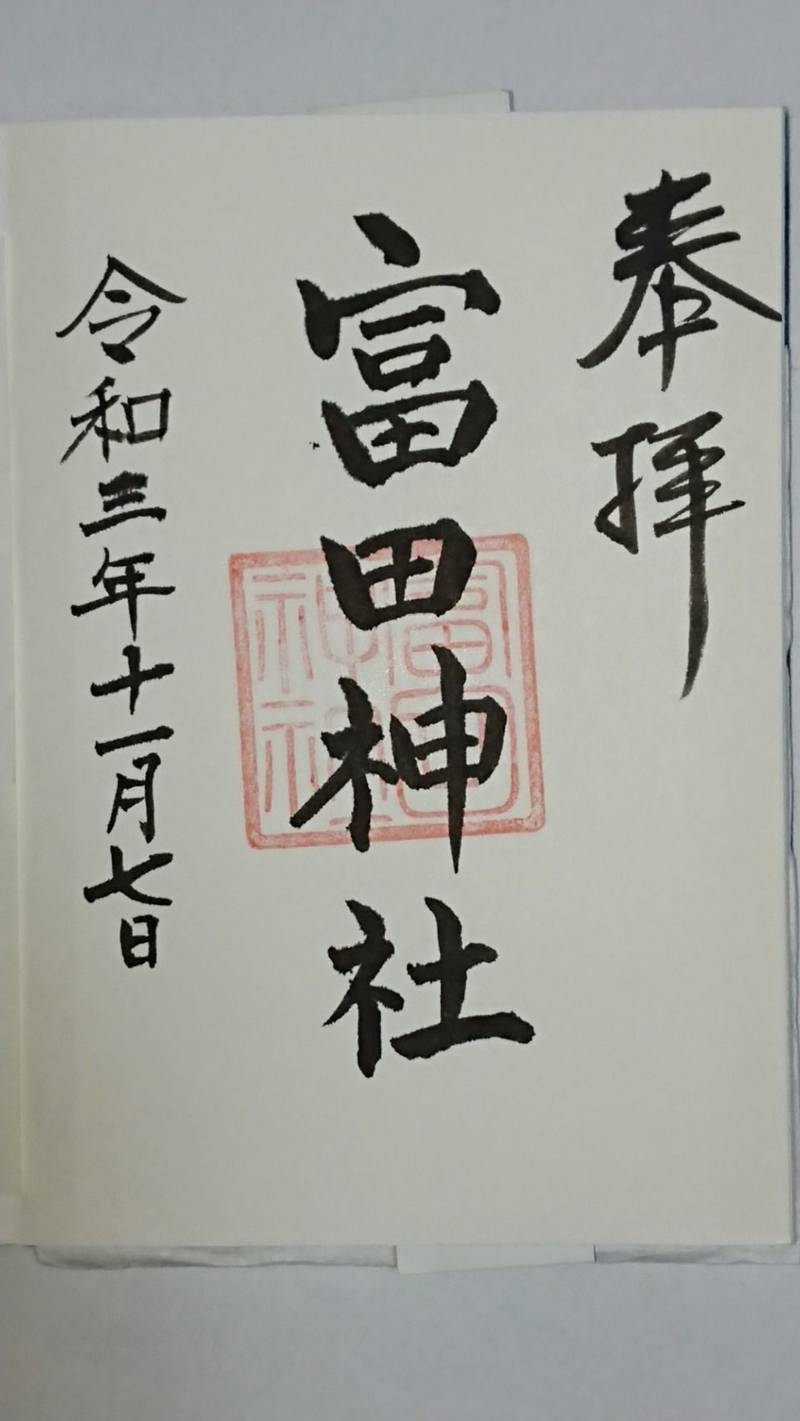 奉拝
富田神社
富田神社
令和三年十一月七日